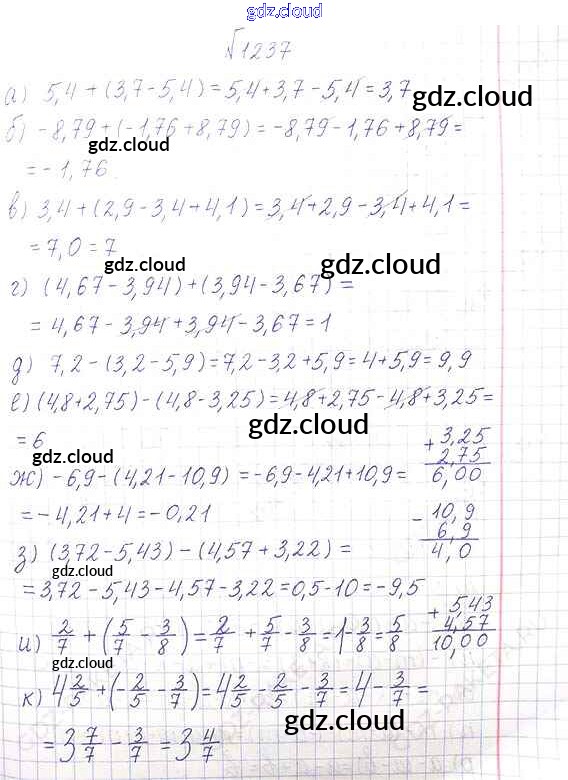 gdz.cloud
№1237
а) 5,4 + (3,7 - 5,4) = 5,4 + 3,7 - 5,4 = 3,7
gdz.cloud
б) -8,79 + (-1,76 + 8,79) = -8,79 - 1,76 + 8,79 =
gdz.cloud
= -1,76
в) 3,4 + (2,9 - 3,4 + 4,1) = 3,4 + 2,9 - 3,4 + 4,1 =
= 7,0 = 7
gdz.cloud gdz.cloud
г) (4,67 - 3,94) + (3,94 - 3,67) =
= 4,67 - 3,94 + 3,94 - 3,67 = 1
д) 7,2 - (3,2 - 5,9) = 7,2 - 3,2 + 5,9 = 4 + 5,9 = 9,9
е) (4,8 + 2,75) - (4,8 - 3,25) = 4,8 + 2,75 - 4,8 + 3,25 =
gdz.cloud
= 6
+ 3,25
2,75
6,00
ж) -6,9 - (4,21 - 10,9) = -6,9 - 4,21 + 10,9 =
= -4,21 + 4 = -0,21
- 10,9
6,9
4,0
з) (3,72 - 5,43) - (4,57 + 3,22) =
gdz.cloud
= 3,72 - 5,43 - 4,57 - 3,22 = 0,5 - 10 = -9,5
+ 5,43
4,57
10,00
и) 2/7 + (5/7 - 3/8) = 2/7 + 5/7 - 3/8 = 1 - 3/8 = 5/8
gdz.cloud
к) 4 2/5 + (-2/5 - 3/7) = 4 2/5 - 2/5 - 3/7 = 4 - 3/7 =
gdz.cloud
= 3 7/7 - 3/7 = 3 4/7